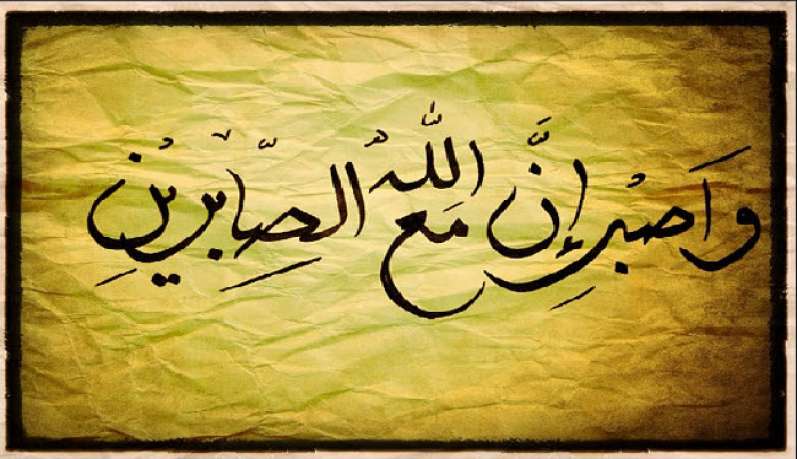 وَاصْبِر إِنَّ اللّٰه مَع الصّابِرِيْنِ